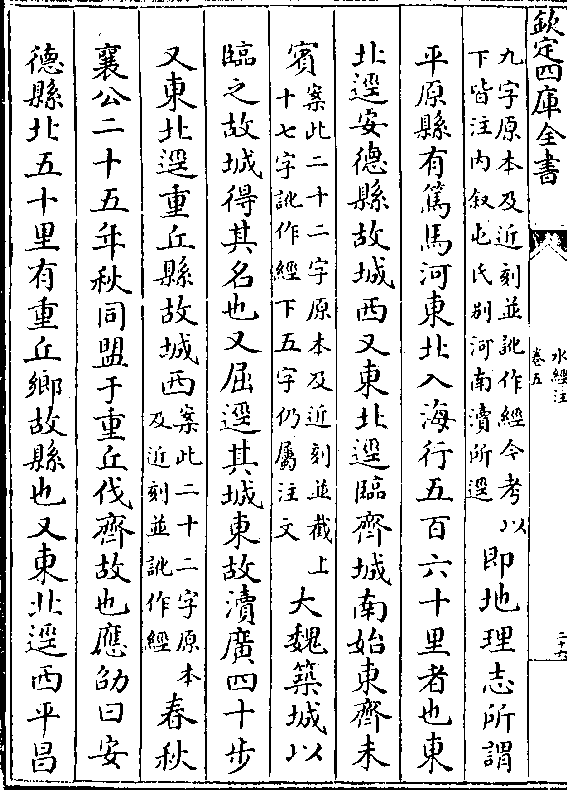 欽定四庫全書
水經注
卷五
二十六
九字原本及近刻並訛作經今考以
下皆注内叙屯氏别河南瀆所逕
即地理志所謂
平原縣有篤馬河東北入海行五百六十里者也東
北逕安德縣故城西又東北逕臨齊城南始東齊未
賔
案此二十二字原本及近刻並截上
十七字訛作經下五字仍屬注文
大魏築城以
臨之故城得其名也又屈逕其城東故瀆廣四十步
又東北逕重丘縣故城西
案此二十二字原本
及近刻並訛作經
春秋
襄公二十五年秋同盟于重丘伐齊故也應劭曰安
德縣北五十里有重丘鄉故縣也又東北逕西平昌